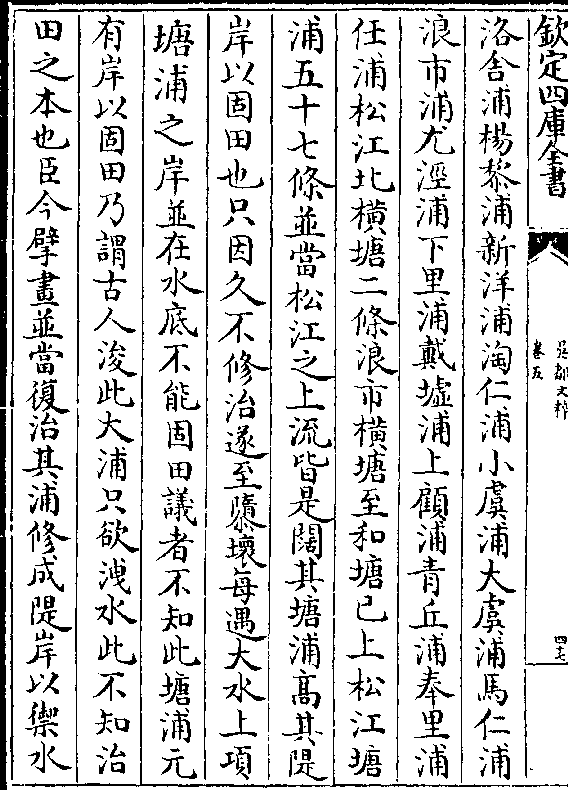 欽定四庫全書
吳都文粹
卷五
四七
洛舍浦楊棃浦新洋浦淘仁浦小虞浦大虞浦馬仁浦
浪市浦尤涇浦下里浦戴墟浦上顧浦青丘浦奉里浦
任浦松江北橫塘二條浪市橫塘至和塘已上松江塘
浦五十七條並當松江之上流皆是闊其塘浦髙其隄
岸以固田也只因久不修治遂至隳壞每遇大水上項
塘浦之岸並在水底不能固田議者不知此塘浦元
有岸以固田乃謂古人浚此大浦只欲洩水此不知治
田之本也臣今擘畫並當復治其浦修成隄岸以禦水